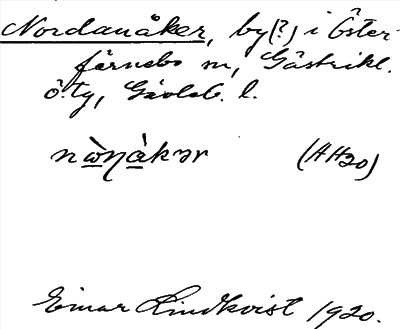 Nordanåker, by(?) i Öster-
färnebo sn, Gästrikl.
ö. tg, Gävleb. l.
nὼŋàkər (AH20)
Einar Lindkvist 1920.